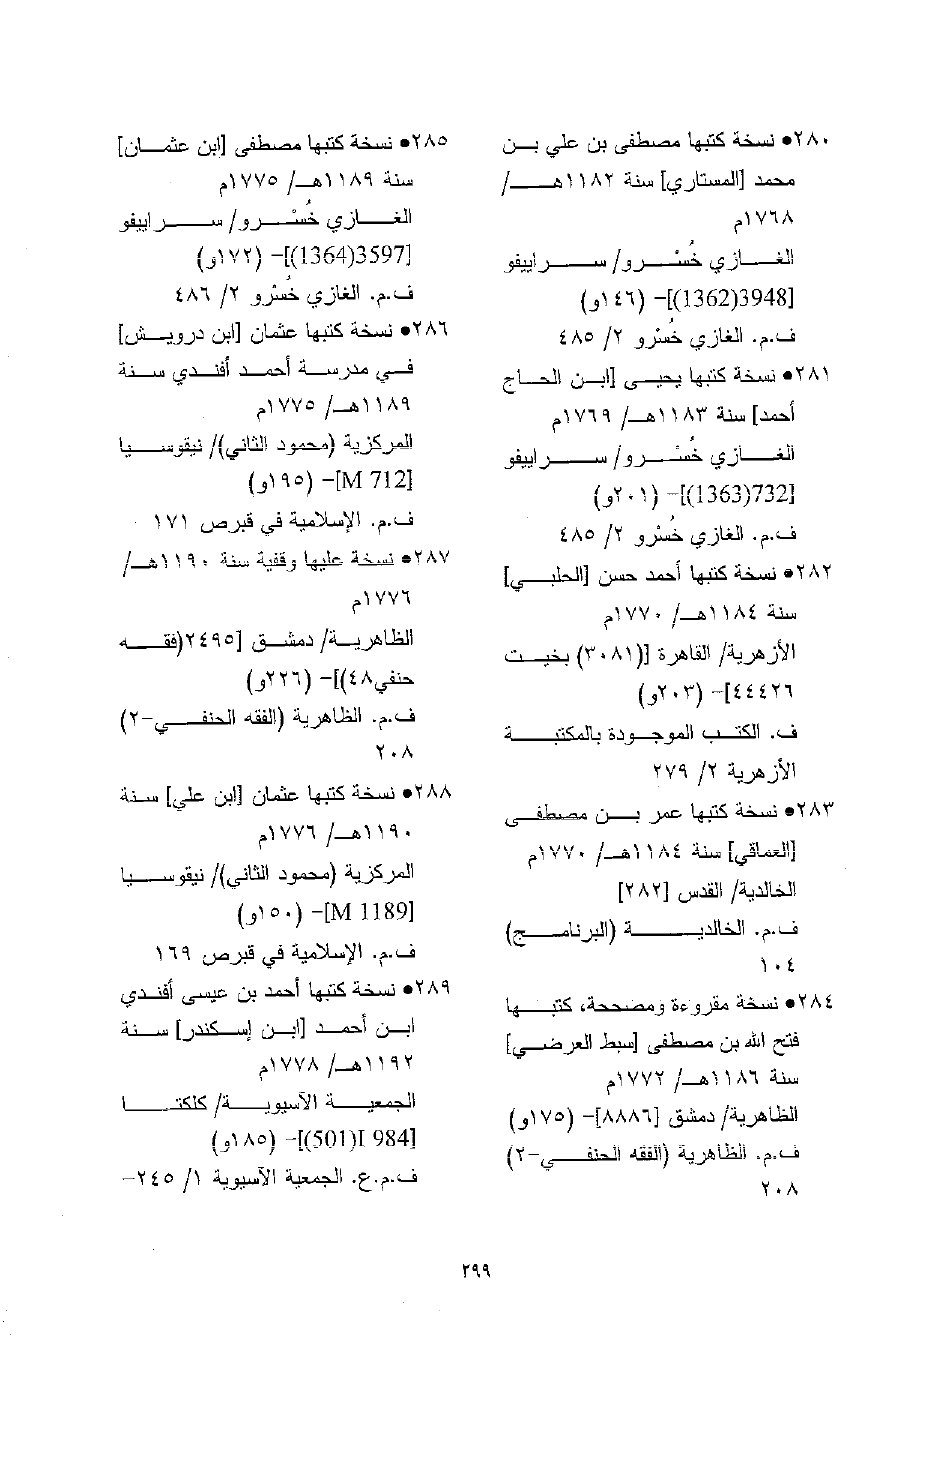 ٢٨٠• نسخة كتبها مصطفى بن علي بن
محمد [المستاري] سنة ١١٨٢هـ/
١٧٦٨م
الغازي خُسْرو/ سراييفو
[3948(1362)]– (١٤٦و)
ف.م. الغازي خُسْرو ٢/ ٤٨٥
٢٨١• نسخة كتبها يحيى [ابن الحاج
أحمد] سنة ١١٨٣هـ/ ١٧٦٩م
الغازي خُسْرو/ سراييفو
[732(1363)]– (٢٠١و)
ف.م. الغازي خُسْرو ٢/ ٤٨٥
٢٨٢• نسخة كتبها أحمد حسن [الحلبي]
سنة ١١٨٤هـ/ ١٧٧٠م
الأزهرية/ القاهرة [(٣٠٨١) بخيت
٤٤٤٢٦]– (٢٠٣و)
ف. الكتب الموجودة بالمكتبة
الأزهرية ٢/ ٢٧٩
٢٨٣• نسخة كتبها عمر بن مصطفى
[العماقي] سنة ١١٨٤هـ/ ١٧٧٠م
الخالدية/ القدس [٢٨٢]
ف.م. الخالدية (البرنامج)
١٠٤
٢٨٤• نسخة مقروءة ومصححة، كتبها
فتح الله بن مصطفى [سبط العرضي]
سنة ١١٨٦هـ/ ١٧٧٢م
الظاهرية/ دمشق [٨٨٨٦]– (١٧٥و)
ف.م. الظاهرية (الفقه الحنفي–٢)
٢٠٨
٢٨٥• نسخة كتبها مصطفى [ابن عثمان]
سنة ١١٨٩هـ/ ١٧٧٥م
الغازي خُسْرو/ سراييفو
[3597(1364)]– (١٧٢و)
ف.م. الغازي خُسْرو ٢/ ٤٨٦
٢٨٦• نسخة كتبها عثمان [ابن درويش]
في مدرسة أحمد أفندي سنة
١١٨٩هـ/ ١٧٧٥م
المركزية (محمود الثاني)/ نيقوسيا
[M 712]– (١٩٥و)
ف.م. الإسلامية في قبرص ١٧١
٢٨٧• نسخة عليها وقفية سنة ١١٩٠هـ/
١٧٧٦م
الظاهرية/ دمشق [٢٤٩٥(فقه
حنفي٤٨)]– (٢٢٦و)
ف.م. الظاهرية (الفقه الحنفي–٢)
٢٠٨
٢٨٨• نسخة كتبها عثمان [ابن علي] سنة
١١٩٠هـ/ ١٧٧٦م
المركزية (محمود الثاني)/ نيقوسيا
[M 1189]– (١٥٠و)
ف.م. الإسلامية في قبرص ١٦٩
٢٨٩• نسخة كتبها أحمد بن عيسى أفندي
ابن أحمد [ابن إسكندر] سنة
١١٩٢هـ/ ١٧٧٨م
الجمعية الآسيوية/ كلكتا
[I 984(501)]– (١٨٥و)
ف.م.ع. الجمعية الآسيوية ١/ ٢٤٥–
٢٩٩